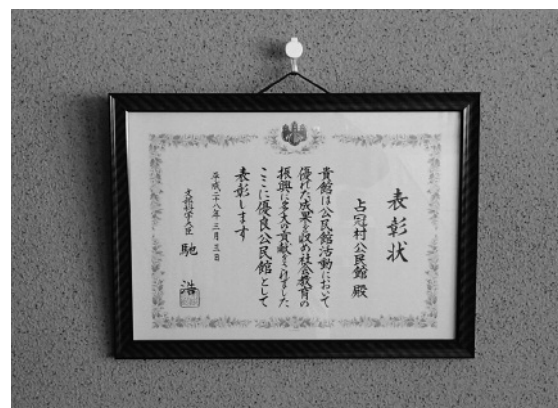 表彰状
占冠村公民館 殿
貴館は公民館活動において
優れた成果を収め社会教育の
振興に多大の貢献をされました
ここに優良公民館として
表彰します
平成二十八年三月三日
文部科学大臣 馳 浩